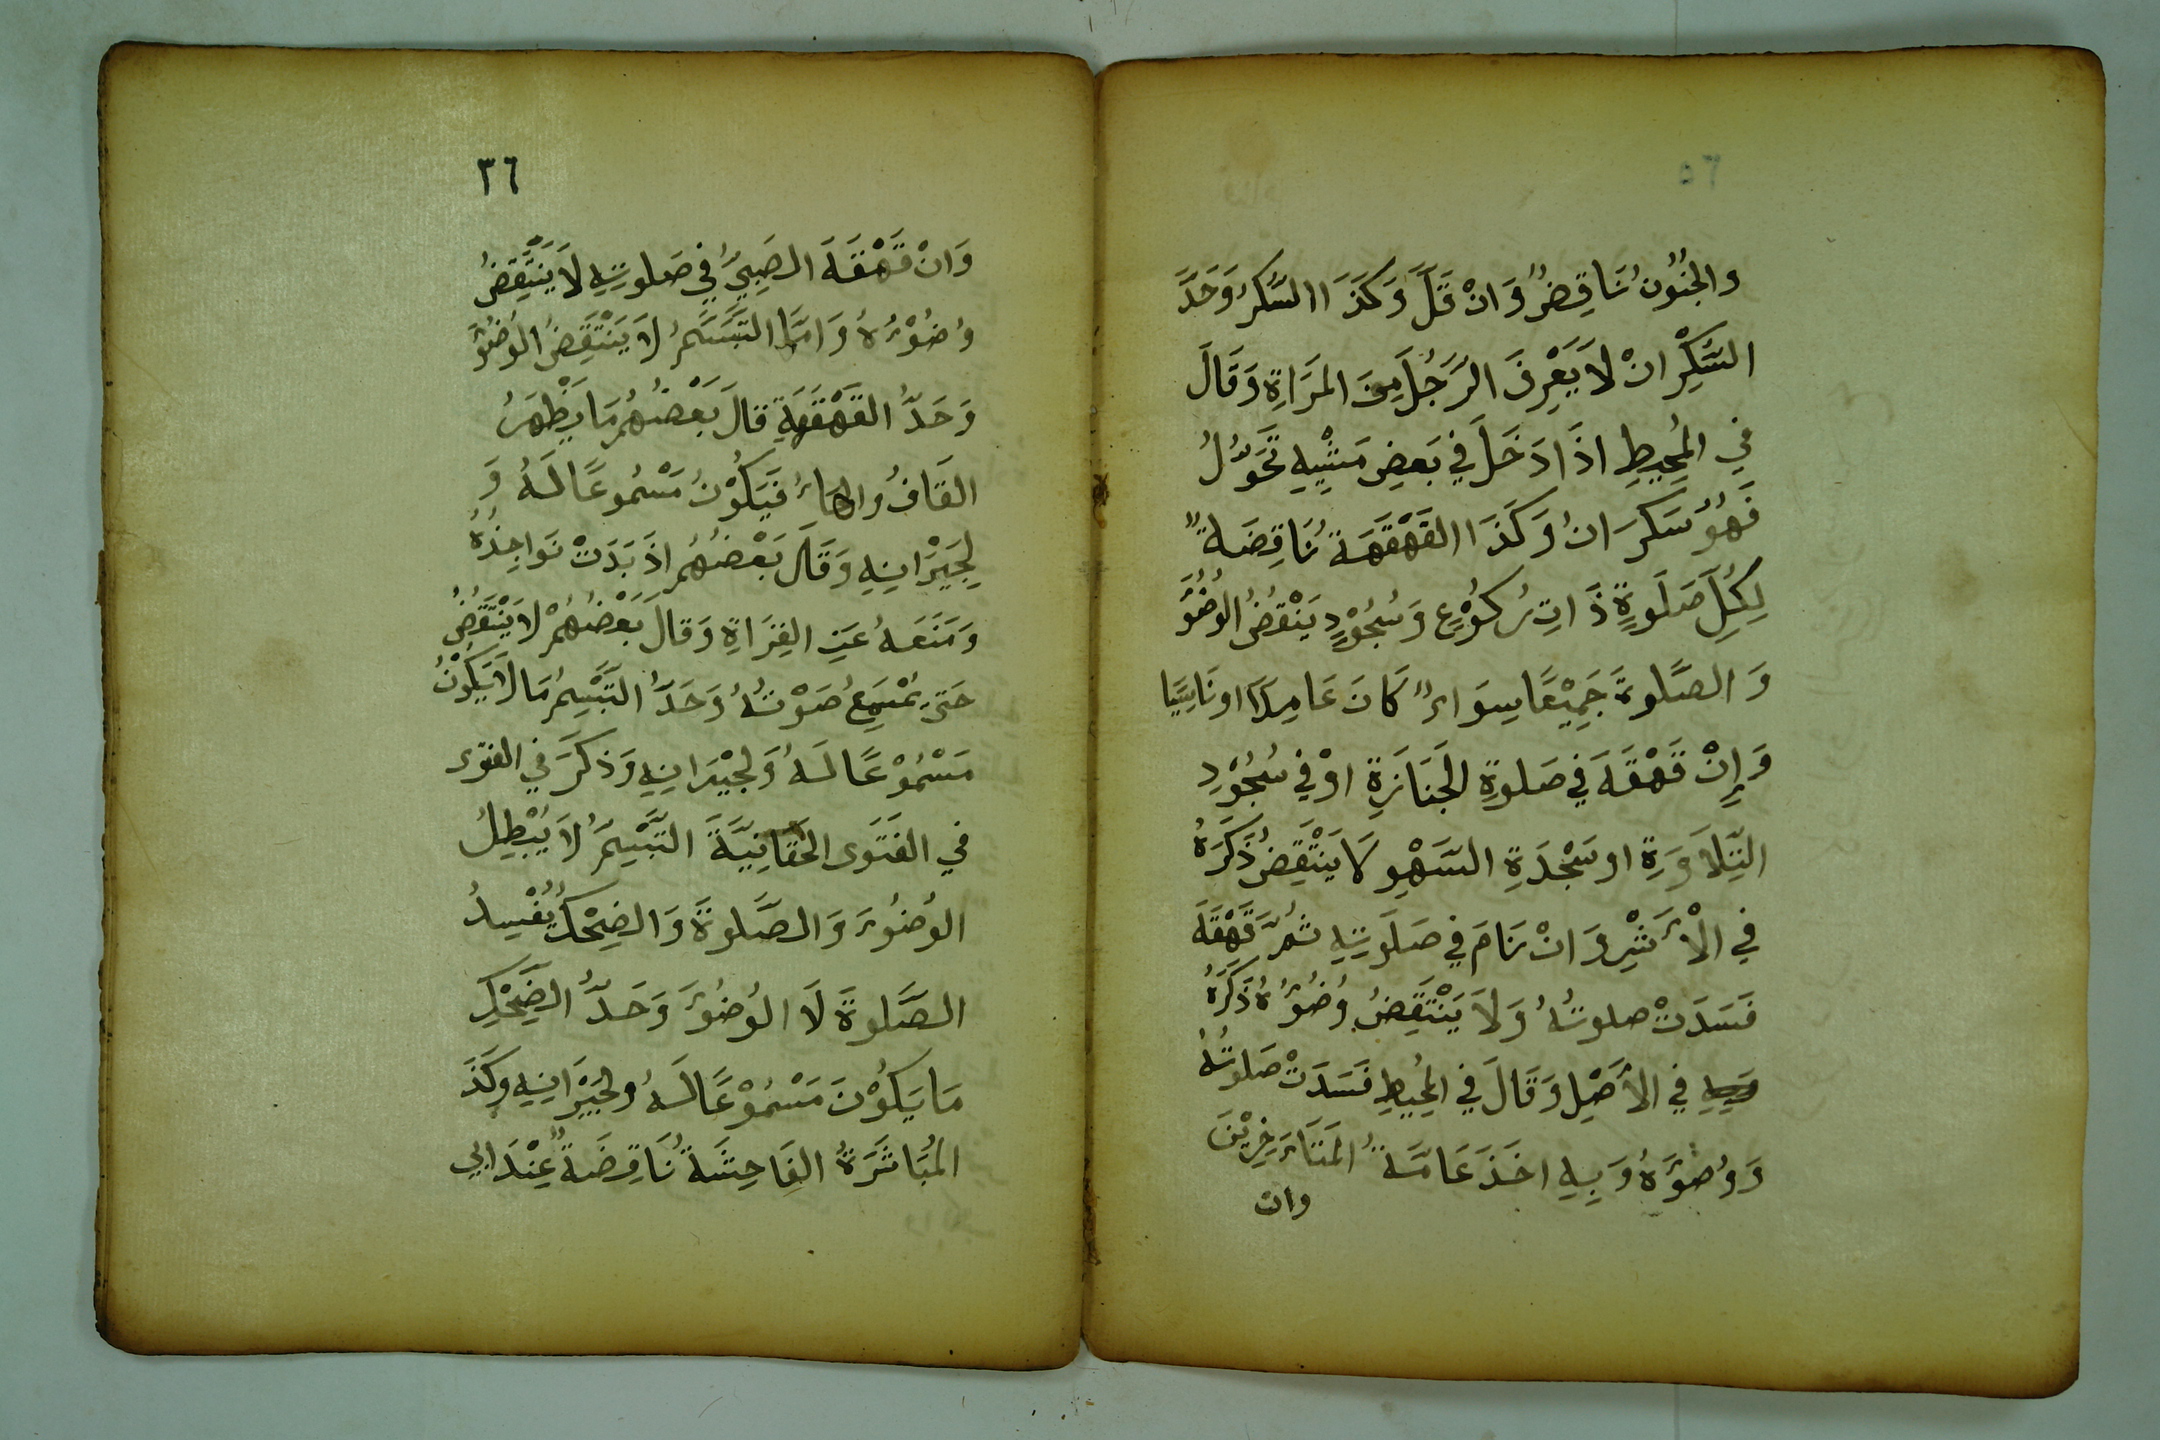 والجنُوُنُ نَاقِضٌ وَانْ قَلَّ وَكَذَا السَّكرُ وَحَدَّ
السَّكِرْانْ لاَ يَعْرِفَ الرَجُلَ مِنَ المَرَاةِ وَقَالَ
فِي المُحِيطِ اذَا دَخَلَ فِي بَعضِ مَشْيِهِ تَحَوُّلُ
فَهُوُ سَكرَانُ وَكَذَا القَهْقَهَةُ نَاقِضَةٌ
لِكُلِّ صَلَوةٍ ذَاتِ رُكوُعٍ وَسُجُوْدٍ يَنْقُضُ الوُضُوُ
وَ الصَّلوةَ جَمِيْعًا سِوَاءٌ كَانَ عَامِدًا اونَاسِيًا
وَإِنْ قَهْقَهَ فِي صَلوةِ الجَنَازَةِ اوْ فِي سُجُوْدِ
التِّلاَوَةِ او سَجْدَةِ السَّهْوِ لاَ يَنْتَقِضُ ذَكَرَهُ
فِي الْأَثَرِ وَانْ نَامَ فِي صَلَوتِهِ ثُمَّ قَهْقَهَ
فَسَدَتْ صلوتُهُ وَلاَ يَنْتَقِضُ وُضُوُءُهُ ذَكَرَهُ
فِي الأَصْلِ وَقَالَ فِي المُحِيطِ فَسَدَتْ صَلوتُهُ
وَوُضوَءُهُ وَبِهِ اخَذَ عَامَّةُ المَتَأَخِرِيْنَ
وان
٣٦
وَانْ قَهْقَهَ الصَبِيُّ فِي صَلوتِهِ لاَ يَنْتَقِضُ
وُضُوْءُهُ وَامَّا التَبَسَّمُ لاَ يَنْتَقِضُ الوُضُوَُ
وَحَدُّ القَهْقَهَةِ قالَ بَعْضُهُمْ مَا يَظْهَرُ
القَافُ والهَاءُ فَيَكُوْنُ مَسْمُوعًا لَهُ وَ
لِجَيْرَانِهِ وَقَالَ بَعْضُهُمْ اذَ بَدَتْ نَواجِذُهُ
وَمَنَعَهُ عَنِ القِرَاةِ وَقالَ بَعْضُهُمْ لاَ يَنْتَقُضُ
حَتى يُسْمَعُ صَوْتُهُ وَحَدُّ التَّبَسُّمُ مَا لاَ يَكُوْنُ
مَسْمُوْعًا لَهُ وَلجِيْرَانِهِ وَذكَرَ في الفتوى
في الفَتَوَى الخَقَانِيَّةَ التَّبَسُّمُ لاَ يُبْطِلُ
الوُضُوُءَ وَالصَّلوةَ وَالضِحْكُ يُفْسِدُ
الصَّلوةَ لَا الوُضُوُءَ وَحَدُّ الضَّحْكِ
مَا يَكُوْنَ مَسْمُوْعًا لَهُ ولجَيْرَانِهِ وَكَذَ
المُبَاشَرَةُ الفَاحِشَةُ نَاقِضَةٌ عِنْدَ ابي